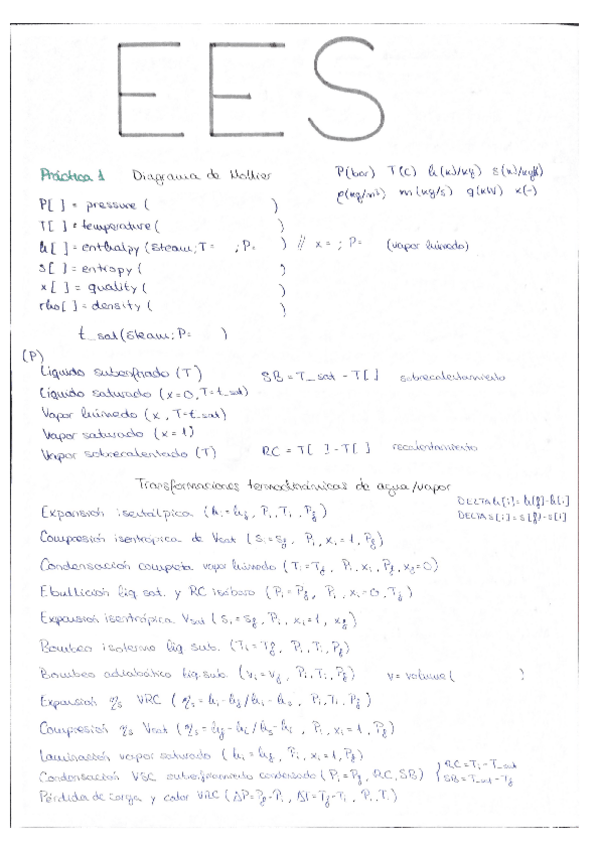 EES
Práctica 1 Diagrama de Mollier P(bar) T(C) h(kJ/kg) s(kJ/kgK)
ρ(kg/m³) m(kg/s) q(kW) x(-)
P[ ] = pressure ( )
T[ ] = temperature ( )
h[ ] = enthalpy (Steam; T= ; P= ) // x = ; P= (vapor húmedo)
s[ ] = entropy ( )
x[ ] = quality ( )
rho[ ] = density ( )
t_sat(Steam; P= )
(P)
Líquido subenfriado (T) SB = T_sat - T[ ] sobrecalentamiento
Líquido saturado (x=0, T=t_sat)
Vapor húmedo (x, T=t_sat)
Vapor saturado (x=1)
Vapor sobrecalentado (T) RC = T[ ] - T[ ] recalentamiento
Transformaciones termodinámicas de agua/vapor
DELTAh[i] = h[f]-h[i]
DELTAs[i] = s[f]-s[i]
Expansión isentálpica (hi=hf, Pi, Ti, Pf)
Compresión isentrópica de Vsat (si=sf, Pi, xi=1, Pf)
Condensación completa vapor húmedo (Ti=Tf, Pi, xi, Pf, xf=0)
Ebullición liq sat. y RC isóbaro (Pi=Pf, Pi, xi=0, Tf)
Expansión isentrópica Vsat (si=sf, Pi, xi=1, xf)
Bombeo isotermo liq sub. (Ti=Tf, Pi, Ti, Pf)
Bombeo adiabático liq. sub. (vi=vf, Pi, Ti, Pf) v = volume ( )
Expansión ηs VRC (ηs = hi-hf/hi-hs, Pi, Ti, Pf)
Compresión ηs Vsat (ηs = hf-hi/hs-hi, Pi, xi=1, Pf)
Laminación vapor saturado (hi=hf, Pi, xi=1, Pf)
Condensación VSC subenfriamiento condensado (Pi=Pf, RC, SB) } RC=Ti-T_sat
SB=T_sat-Tf
Pérdida de carga y calor VRC (ΔP=Pf-Pi, ΔT=Tf-Ti, Pi, Ti)